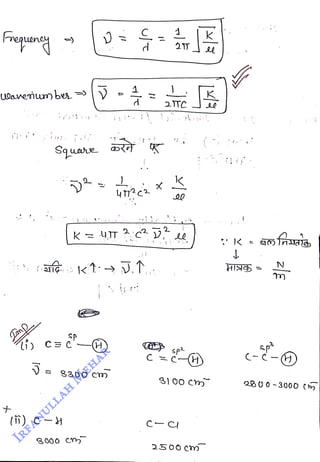 Frequency → ν = C/λ = 1/2π √K/μ
Wavenumber → ν̄ = 1/λ = 1/2πc √K/μ
Square करने पर
ν̄² = 1/4π²c² × K/μ
K = 4π² c² ν̄² μ
∵ K = बल नियतांक
↓
मात्रक = N/m
यदि K↑ → ν̄↑
Imp
(i) C ≡ C^sp – H
C = C^sp² – H
C – C^sp³ – H
ν̄ = 3300 cm⁻
3100 cm⁻
2800-3000 cm⁻
(ii) C – H
C – Cl
3000 cm⁻
2500 cm⁻
IRFANULLAH MEHAR